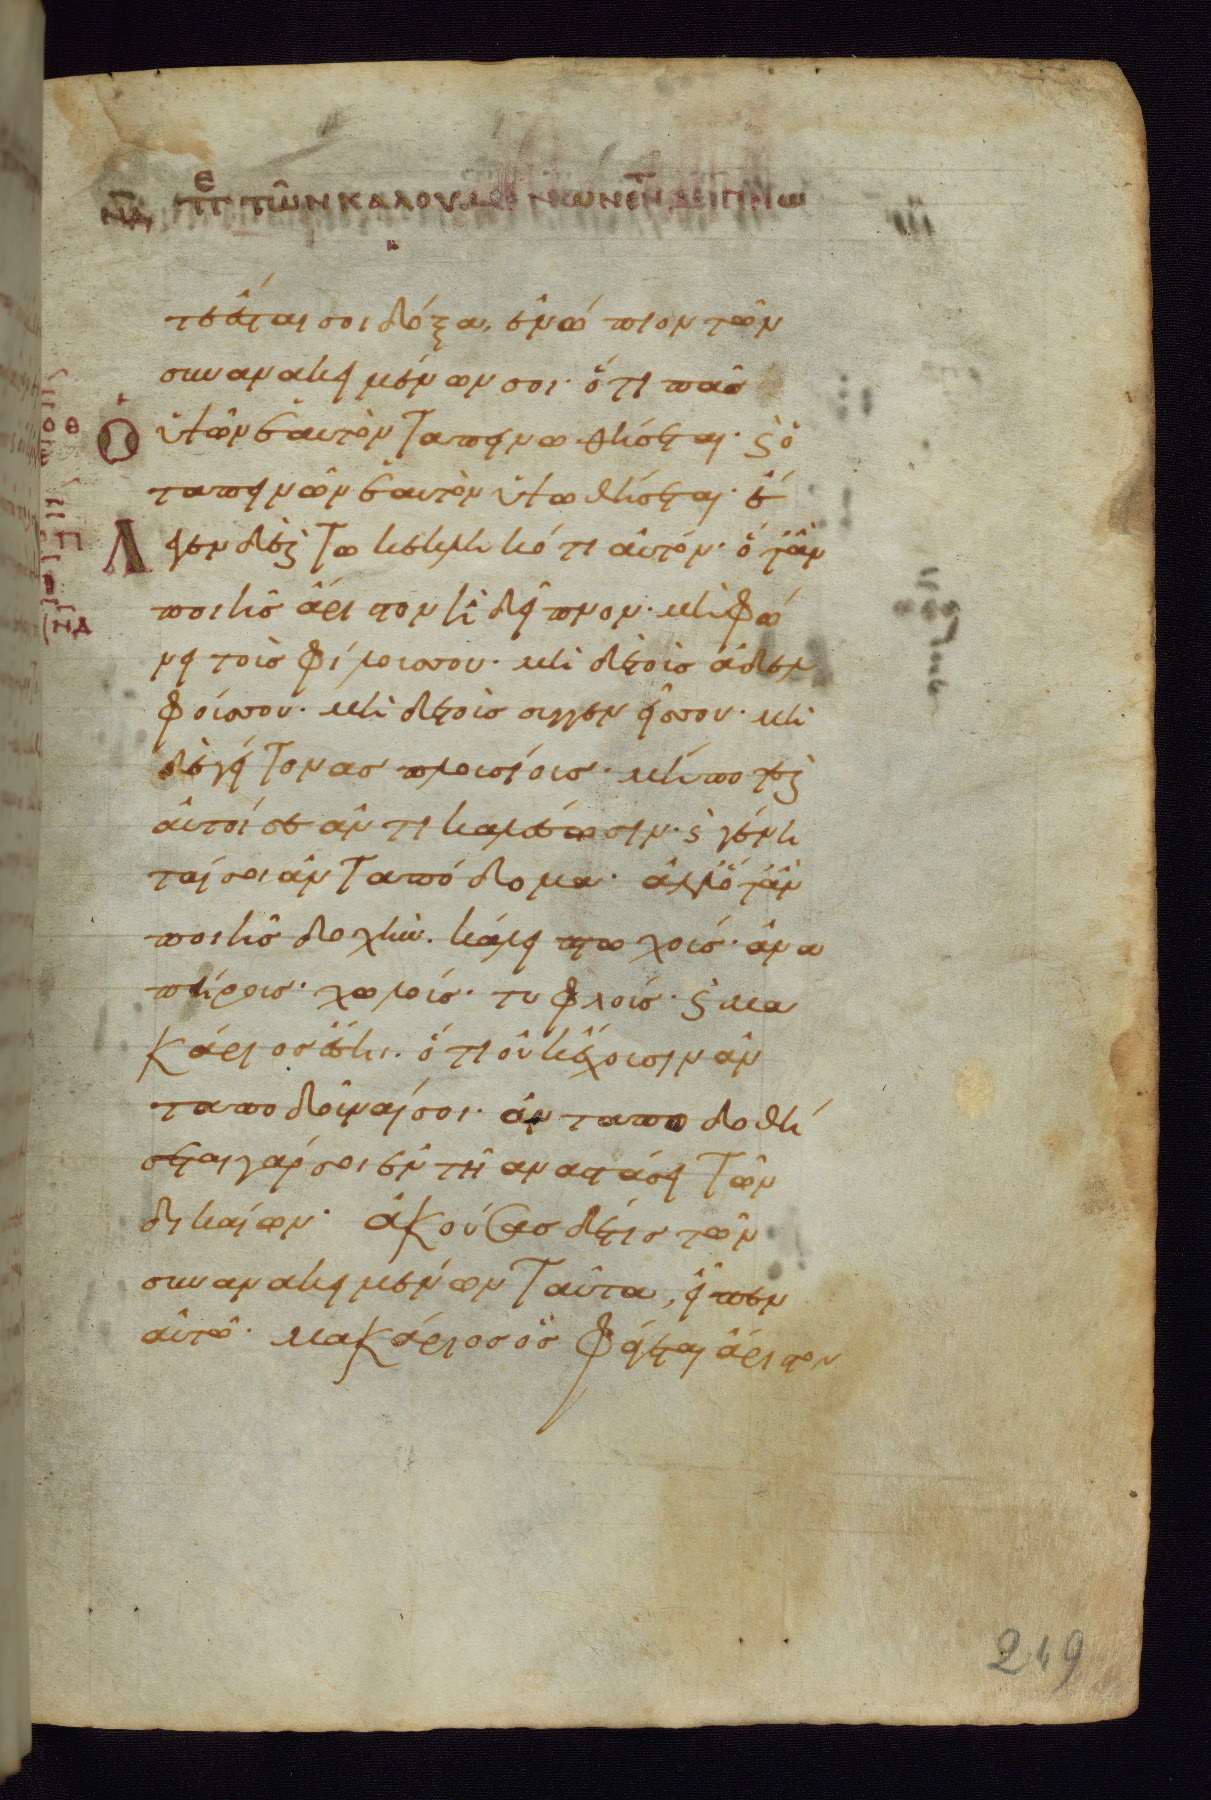 ΝΔ ΠΕΡ ΤΩΝ ΚΑΛΟΥΜΕΝΩΝ ΕΝ Τ ΔΕΙΠΝΩ
τε ἔσται σοι δόξα, ἐνώπιον τῶν
συνανακειμένων σοι· ὅτι πᾶσ
Ὁ ὑψῶν ἑαυτὸν ταπεινωθήσεται· ϛ ὁ
ταπεινῶν ἑαυτὸν ὑψωθήσεται· ἔ
λεγεν δὲ ϛ τῶ κεκληκότι αὐτόν· ὅταν
ποιῆσ ἄριστον ἢ δεῖπνον· μὴ φώ
νει τοὺσ φίλουσ σου· μὴ δὲ τοὺσ ἀδελ
φούσ σου· μὴ δὲ τοὺσ συγγενεῖσ σου· μὴ
δὲ γείτονασ πλουσίουσ· μή ποτε ϛ
αὐτοί σε ἀντικαλέσωσιν· ϛ γένη
ταί σοι ἀνταπόδομα· ἀλλ' ὅταν
ποιῆσ δοχὴν· κάλει πτωχούσ· ἀνα
πήρουσ· χωλούσ· τυφλούσ· ϛ μα
κάριοσ ἔση· ὅτι οὐκ ἔχουσιν ἀν
ταποδοῦναί σοι· ἀνταποδοθή
σεται γάρ σοι ἐν τῆ αναστάσει τῶν
δικαίων· ἀκούσασ δέ τισ τῶν
συνανακειμένων ταῦτα, εἶπεν
αὐτῶ· μακάριοσ ὃσ φάγεται ἄριστον
249